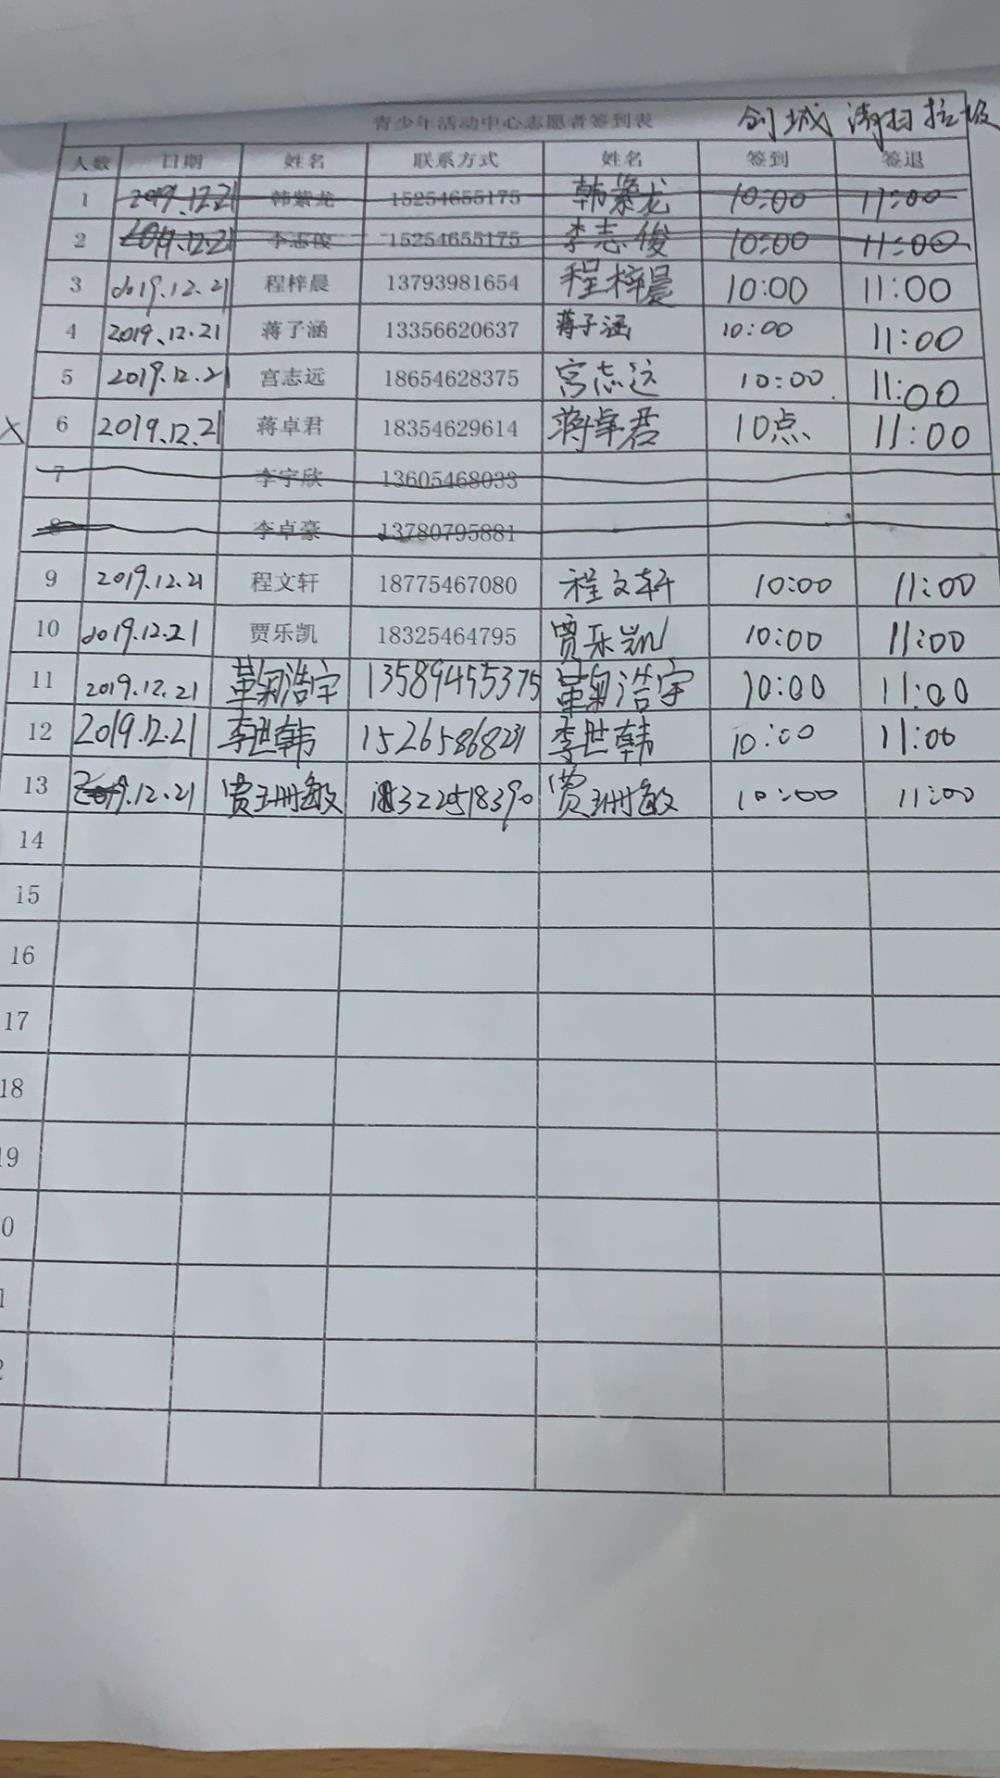 青少年活动中心志愿者签到表 创城 清扫垃圾
人数 日期 姓名 联系方式 姓名 签到 签退
1 2019.12.21 韩紫龙 15254655175 韩紫龙 10:00 11:00
2 2019.12.21 李志俊 15254655175 李志俊 10:00 11:00
3 2019.12.21 程梓晨 13793981654 程梓晨 10:00 11:00
4 2019.12.21 蒋子涵 13356620637 蒋子涵 10:00 11:00
5 2019.12.21 宫志远 18654628375 宫志远 10:00 11:00
X 6 2019.12.21 蒋卓君 18354629614 蒋卓君 10点 11:00
7 李宇欣 13605468033
8 李卓豪 13780795881
9 2019.12.21 程文轩 18775467080 程文轩 10:00 11:00
10 2019.12.21 贾乐凯 18325464795 贾乐凯 10:00 11:00
11 2019.12.21 浩宇 13589455375 浩宇 10:00 11:00
12 2019.12.21 李世韩 李世韩 10:00 11:00
13 2019.12.21 贾珊敏 贾珊敏 10:00 11:00
14
15
16
17
18
19
0
1
2